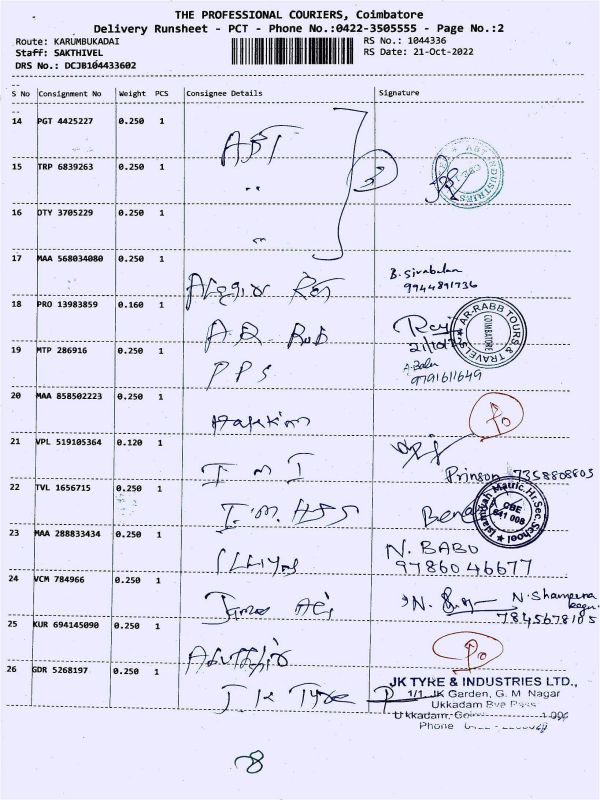 THE PROFESSIONAL COURIERS, Coimbatore
Delivery Runsheet - PCT - Phone No.:0422-3505555 - Page No.:2
Route: KARUMBUKADAI
RS No.: 1044336
Staff: SAKTHIVEL
RS Date: 21-Oct-2022
DRS No.: DCJB104433602
S No Consignment No Weight PCS Consignee Details Signature
14 PGT 4425227 0.250 1
ABT
ABT INDUSTRIES
15 TRP 6839263 0.250 1 "
3
16 OTY 3705229 0.250 1 "
17 MAA 568034080 0.250 1
B. Sivabalan
9944891736
18 PRO 13983859 0.160 1
A.R. RuB
AR-RABB TOURS & TRAVELS
COIMBATORE
21/10/22
19 MTP 286916 0.250 1
PPS
A. Babu
9791611649
20 MAA 858502223 0.250 1
Hakkim
21 VPL 519105364 0.120 1
I M I
Prinson 7358808803
22 TVL 1656715 0.250 1
I.M. HSS
Islamiyah Matric.Hr.Sec.School
CBE
641 008
23 MAA 288833434 0.250 1
N. BABU
9786046677
24 VCM 784966 0.250 1
N. Shameena
Begum
7845678105
25 KUR 694145090 0.250 1
26 GDR 5268197 0.250 1
J.K Tyre
JK TYRE & INDUSTRIES LTD.,
1/1, JK Garden, G. M. Nagar
Ukkadam Bye Pass
Ukkadam,
Phone
8